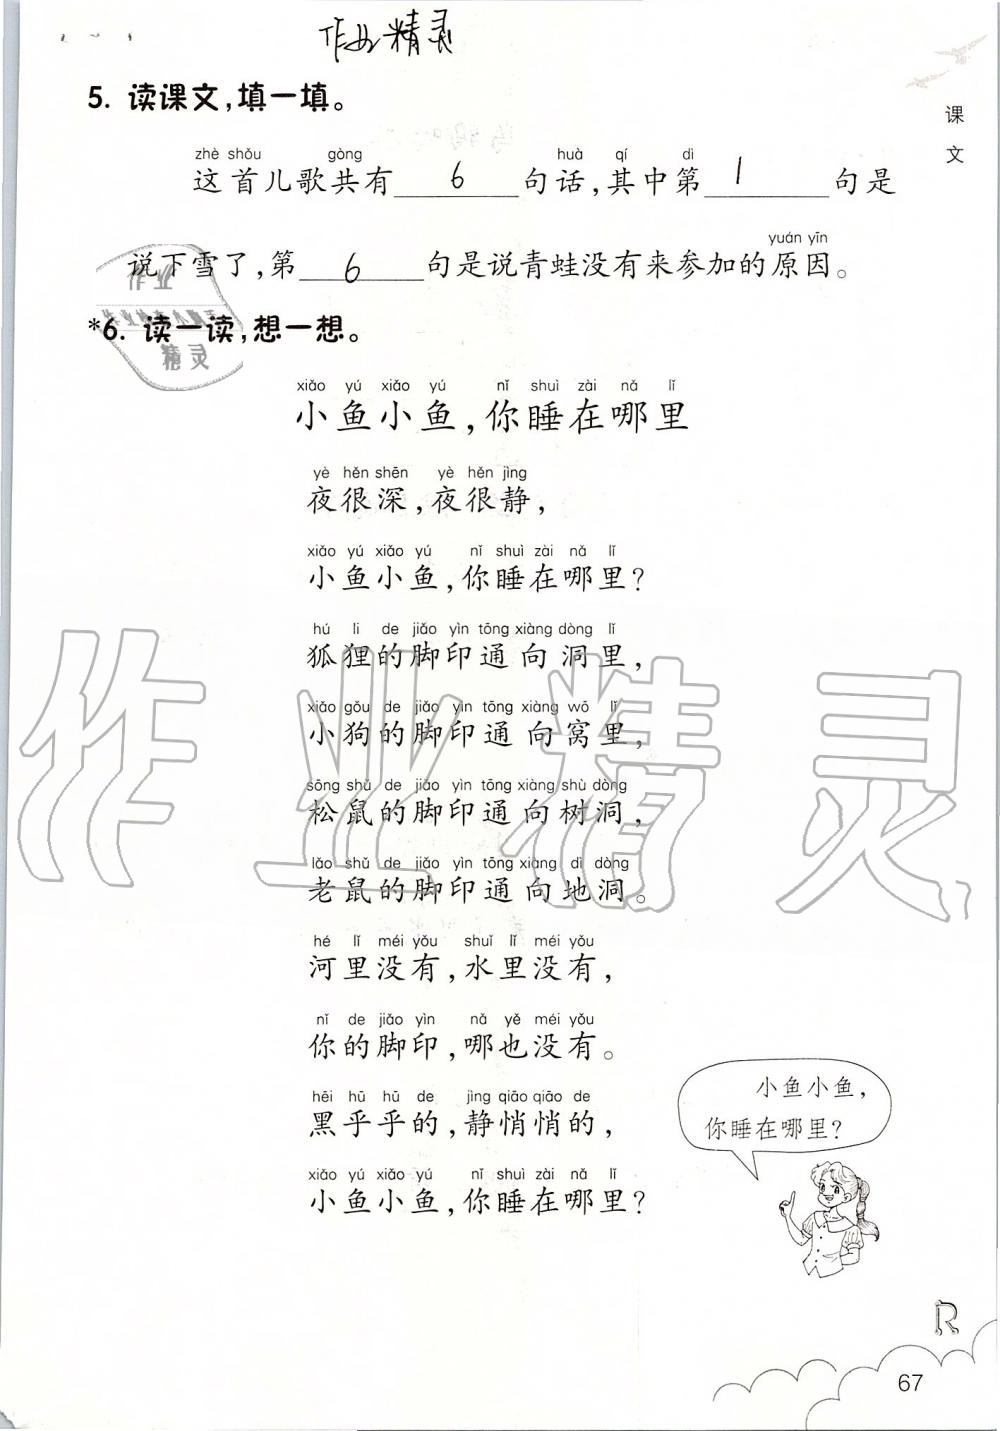 作业精灵
课文
5. 读课文,填一填。
zhè shǒu gòng huà qí dì
这首儿歌共有 6 句话,其中第 1 句是
yuán yīn
说下雪了,第 6 句是说青蛙没有来参加的原因。
作业
作业检查小助手
精灵
*6. 读一读,想一想。
xiǎo yú xiǎo yú nǐ shuì zài nǎ lǐ
小鱼小鱼,你睡在哪里
yè hěn shēn yè hěn jìng
夜很深,夜很静,
xiǎo yú xiǎo yú nǐ shuì zài nǎ lǐ
小鱼小鱼,你睡在哪里?
hú li de jiǎo yìn tōng xiàng dòng lǐ
狐狸的脚印通向洞里,
xiǎo gǒu de jiǎo yìn tōng xiàng wō lǐ
小狗的脚印通向窝里,
sōng shǔ de jiǎo yìn tōng xiàng shù dòng
松鼠的脚印通向树洞,
lǎo shǔ de jiǎo yìn tōng xiàng dì dòng
老鼠的脚印通向地洞。
hé lǐ méi yǒu shuǐ lǐ méi yǒu
河里没有,水里没有,
nǐ de jiǎo yìn nǎ yě méi yǒu
你的脚印,哪也没有。
hēi hū hū de jìng qiāo qiāo de
黑乎乎的,静悄悄的,
xiǎo yú xiǎo yú nǐ shuì zài nǎ lǐ
小鱼小鱼,你睡在哪里?
小鱼小鱼,
你睡在哪里?
作业精灵
R
67